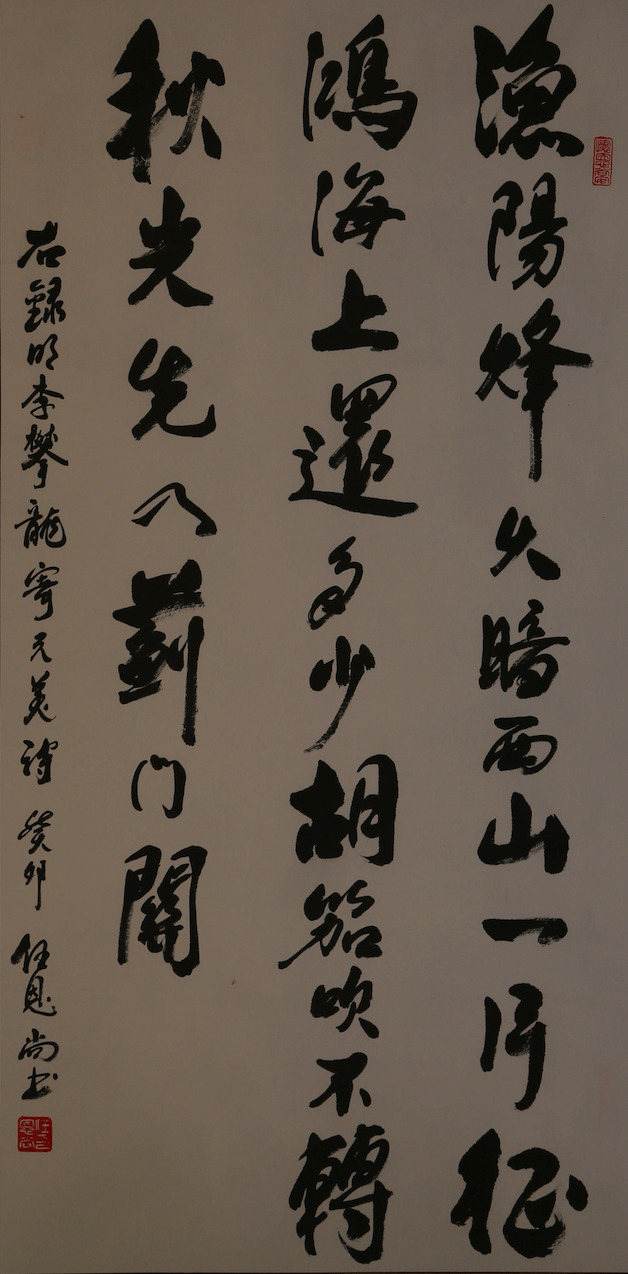 漁陽烽火暗西山一片征
鴻海上還多少胡笳吹不轉
秋光先入薊門關
右錄明李攀龍寄元美詩 癸卯 任恩尚書